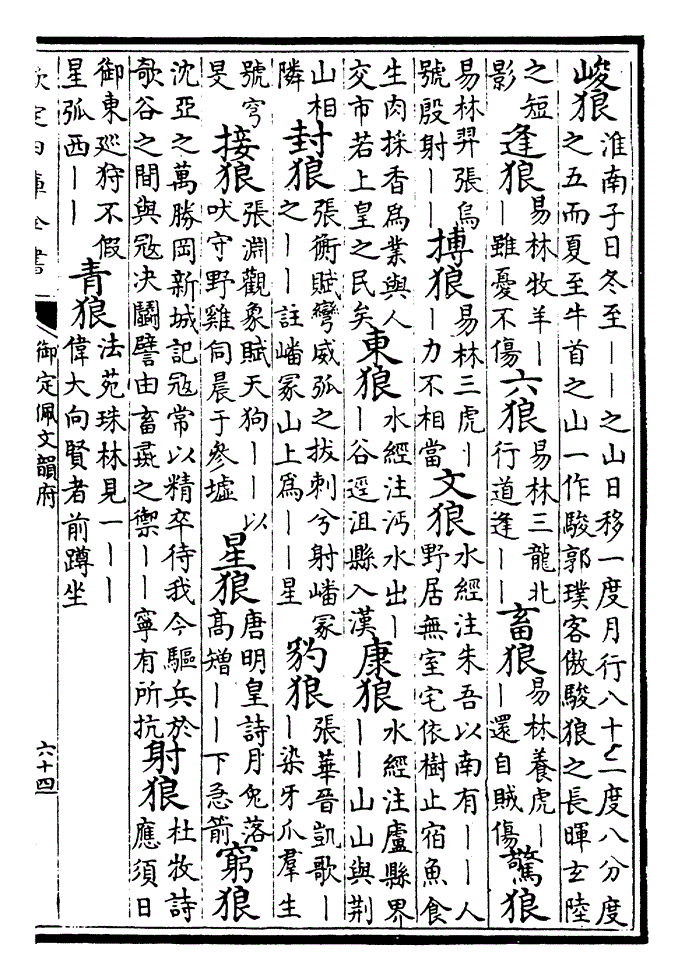 峻狼
淮南子日冬至——之山日移一度月行八十二度八分度
之五而夏至牛首之山一作駿郭璞客傲駿狼之長暉玄陸
之短
影
逢狼
易林牧羊—
—雖憂不傷
六狼
易林三龍北
行道逢——
畜狼
易林養虎—
—還自賊傷
驚狼
易林羿張烏
號彀射——
搏狼
易林三虎—
—力不相當
文狼
水經注朱吾以南有——人
野居無室宅依樹止宿魚食
生肉採香為業與人
交市若上皇之民矣
東狼
水經注沔水出—
—谷逕沮縣入漢
康狼
水經注盧縣界
——山山與荆
山相
隣
封狼
張衡賦彎威弧之拔刺兮射嶓冢
之——註嶓冢山上為——星
豹狼
張華晉凱歌—
—染牙爪羣生
號穹
旻
接狼
張淵觀象賦天狗——以
吠守野雞伺晨于參墟
星狼
唐明皇詩月兔落
高矰——下急箭
窮狼
沈亞之萬勝岡新城記寇常以精卒待我今驅兵於
欹谷之間與寇决鬬譬由畜之禦——寧有所抗
射狼
杜牧詩
應須日
御東廵狩不假
星弧西——
青狼
法苑珠林見一——
偉大向賢者前蹲坐
欽定四庫全書
御定佩文韻府
六十四